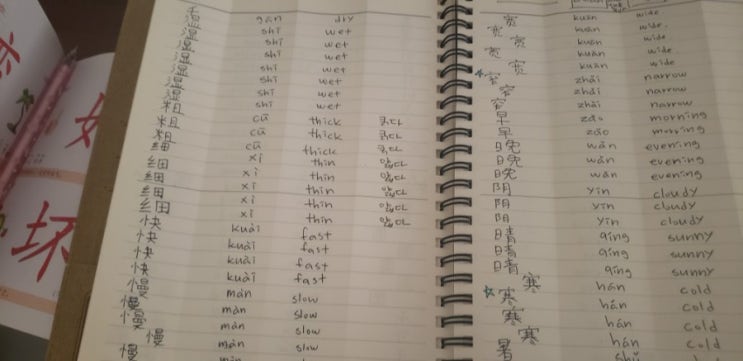 gān dry
湿 shī wet
湿 shī wet
湿 shī wet
湿 shī wet
湿 shī wet
湿 shī wet
粗 cū thick 굵다
粗 cū thick 굵다
cū thick 굵다
细 xì thin 얇다
细 xì thin 얇다
细 xì thin 얇다
细 xì thin 얇다
xì thin 얇다
快 kuài fast
快 kuài fast
快 kuài fast
快 kuài fast
慢 màn slow
慢 màn slow
慢 màn slow
慢 màn slow
慢
宽 kuān wide
宽 宽 kuān wide
宽 kuān wide
宽 kuān wide
窄 zhǎi narrow
窄 zhǎi narrow
窄 zhǎi narrow
早 zǎo morning
早 zǎo morning
晚 wǎn evening
晚 wǎn evening
晚 wǎn evening
阴 yīn cloudy
阴 yīn cloudy
阴 yīn cloudy
晴 qíng sunny
晴 qíng sunny
晴 qíng sunny
寒 hán cold
寒 hán cold
寒 hán cold
寒 hán cold
暑 shǔ
坏